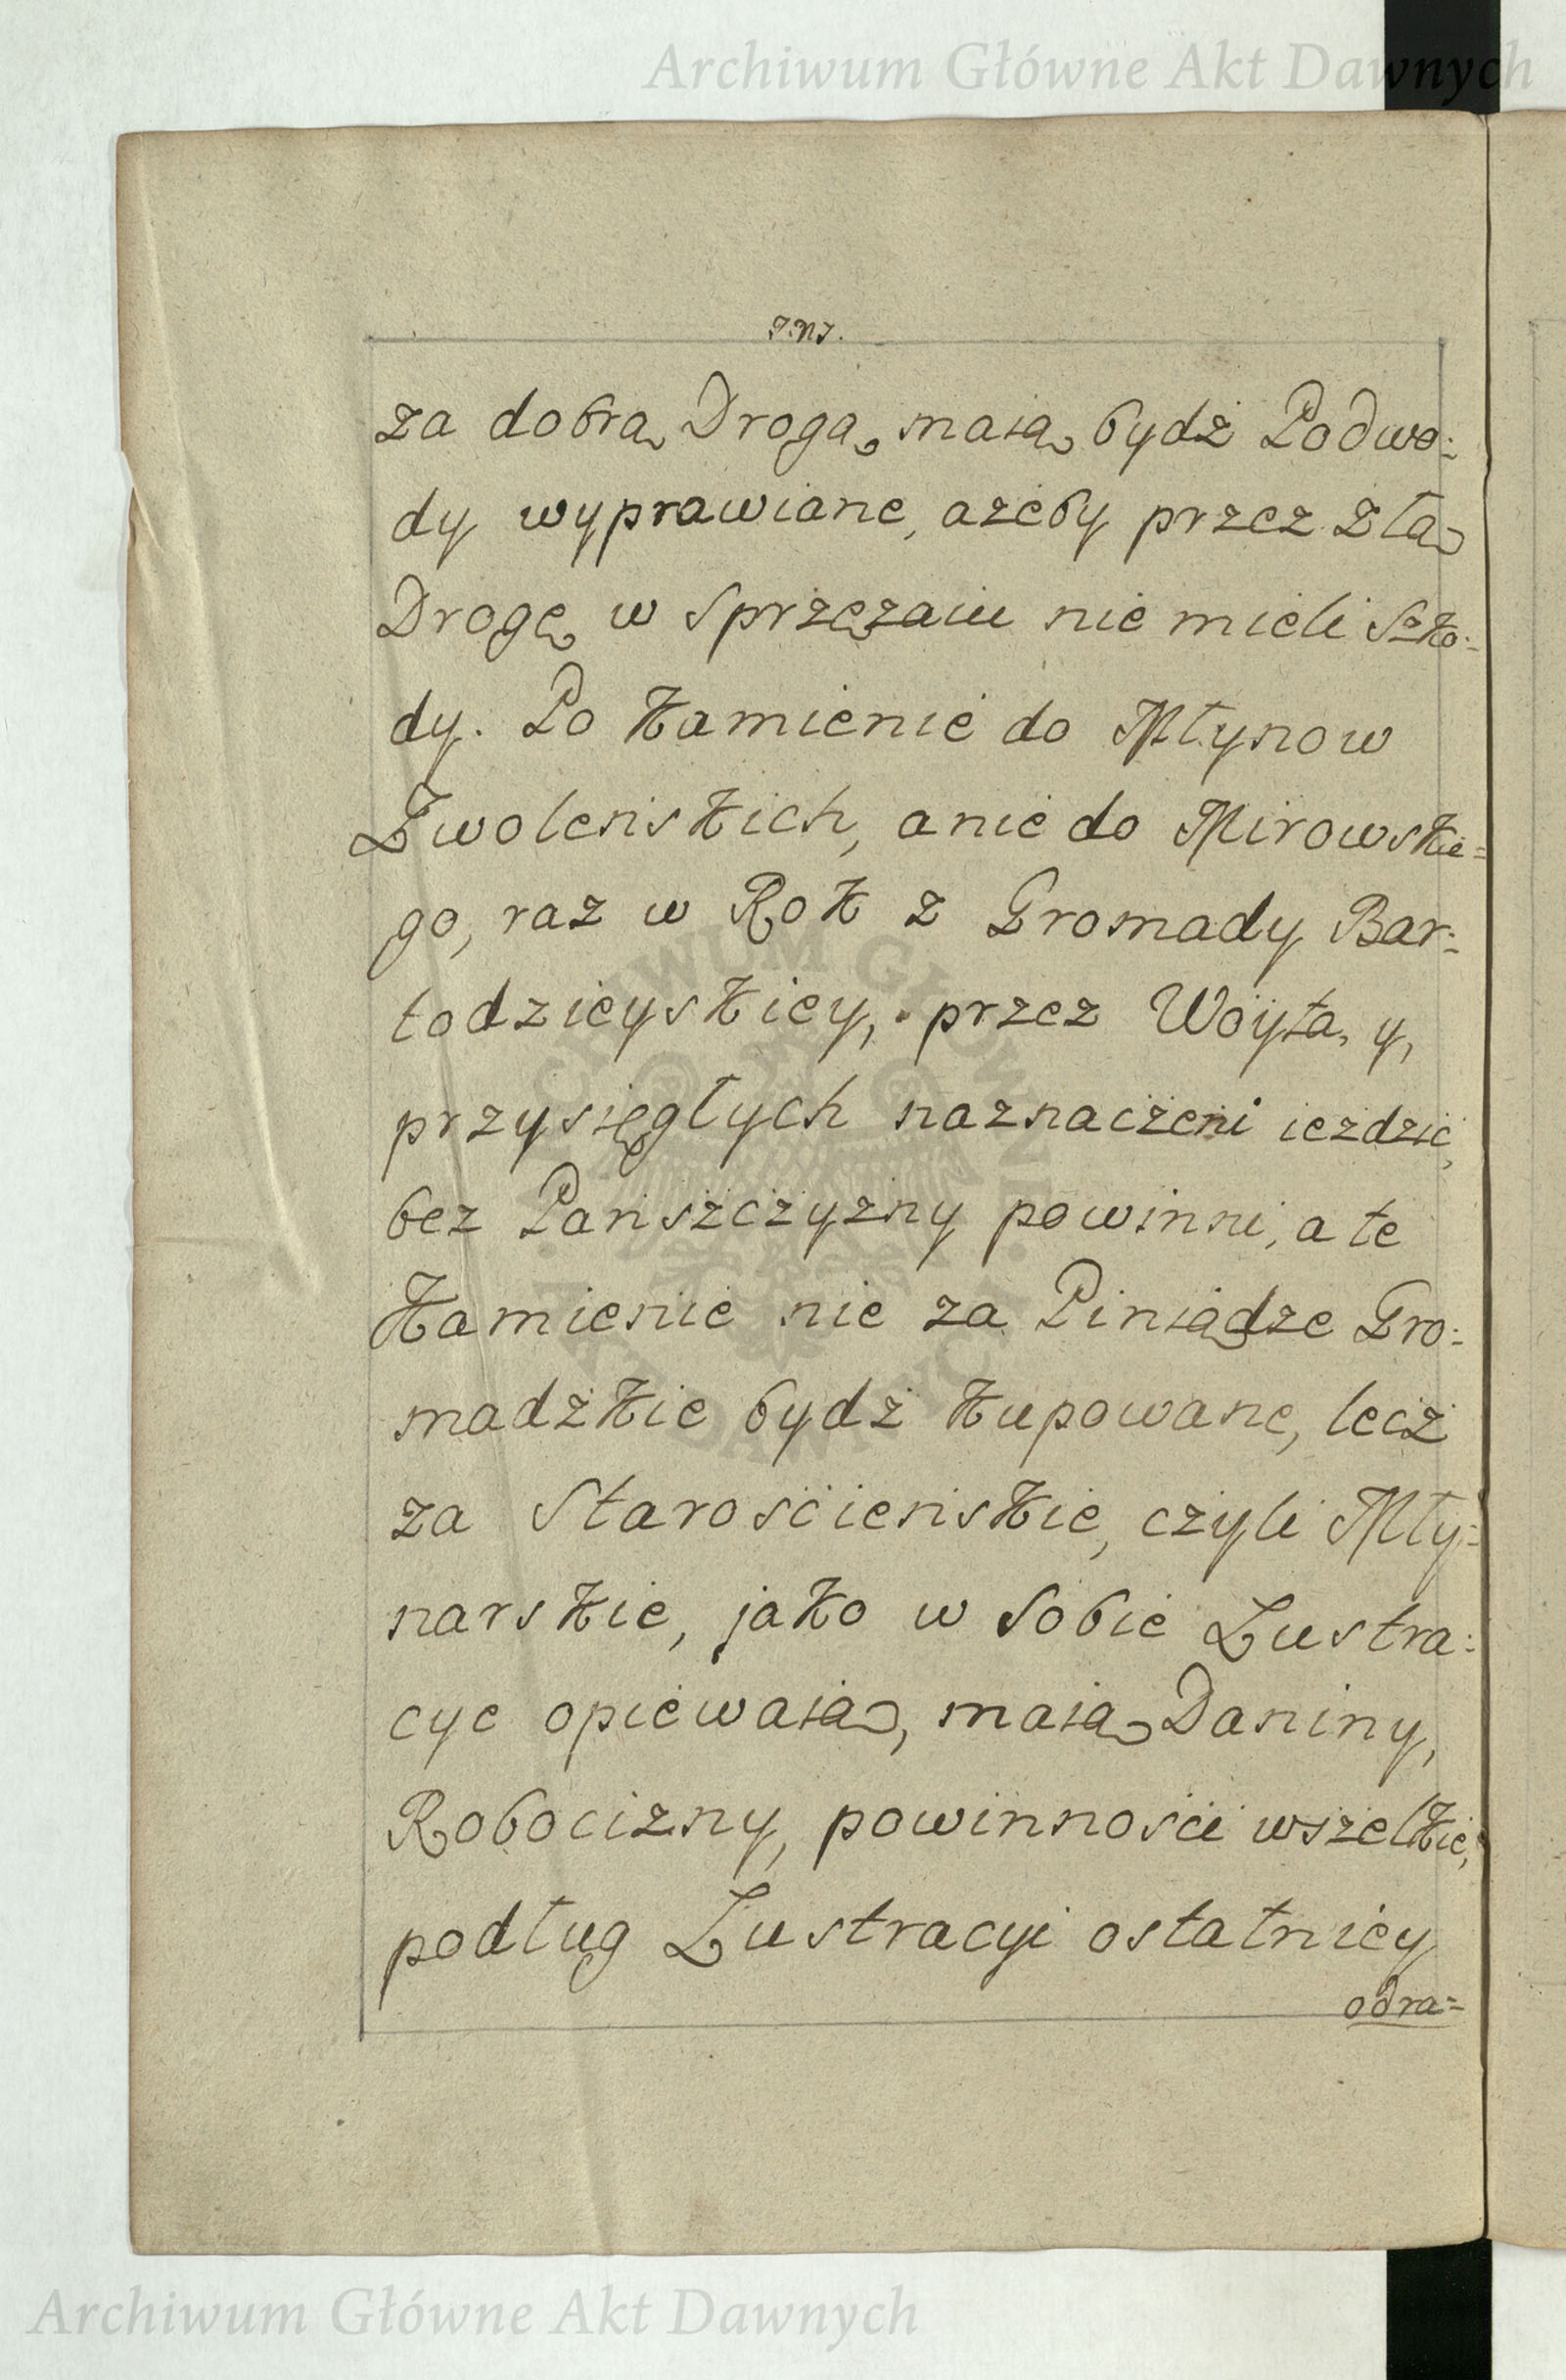 Archiwum Główne Akt Dawnych
za dobrą Drogą mają bydź Podwo:
dy wyprawiane, ażeby przez złą
Drogę w sprzężaiu nie mieli szko:
dy. Po Kamienie do Młynow
Zwoleńskich, a nie do Mirowskie=
go, raz w Rok z Gromady Bar:
todzieyskiey, przez Woyta, y,
przysięgłych naznaczeni ieździć,
bez Pańszczyzny powinni, a te
Kamienie nie za Piniądze Gro:
madzkie bydź kupowane, lecz
za Starościeńskie, czyli Mły:
narskie, jako w sobie Lustra:
cye opiewaią, maią Daniny,
Robocizny, powinności wszelkie,
podług Lustracyi ostatniey
odra=
Archiwum Główne Akt Dawnych